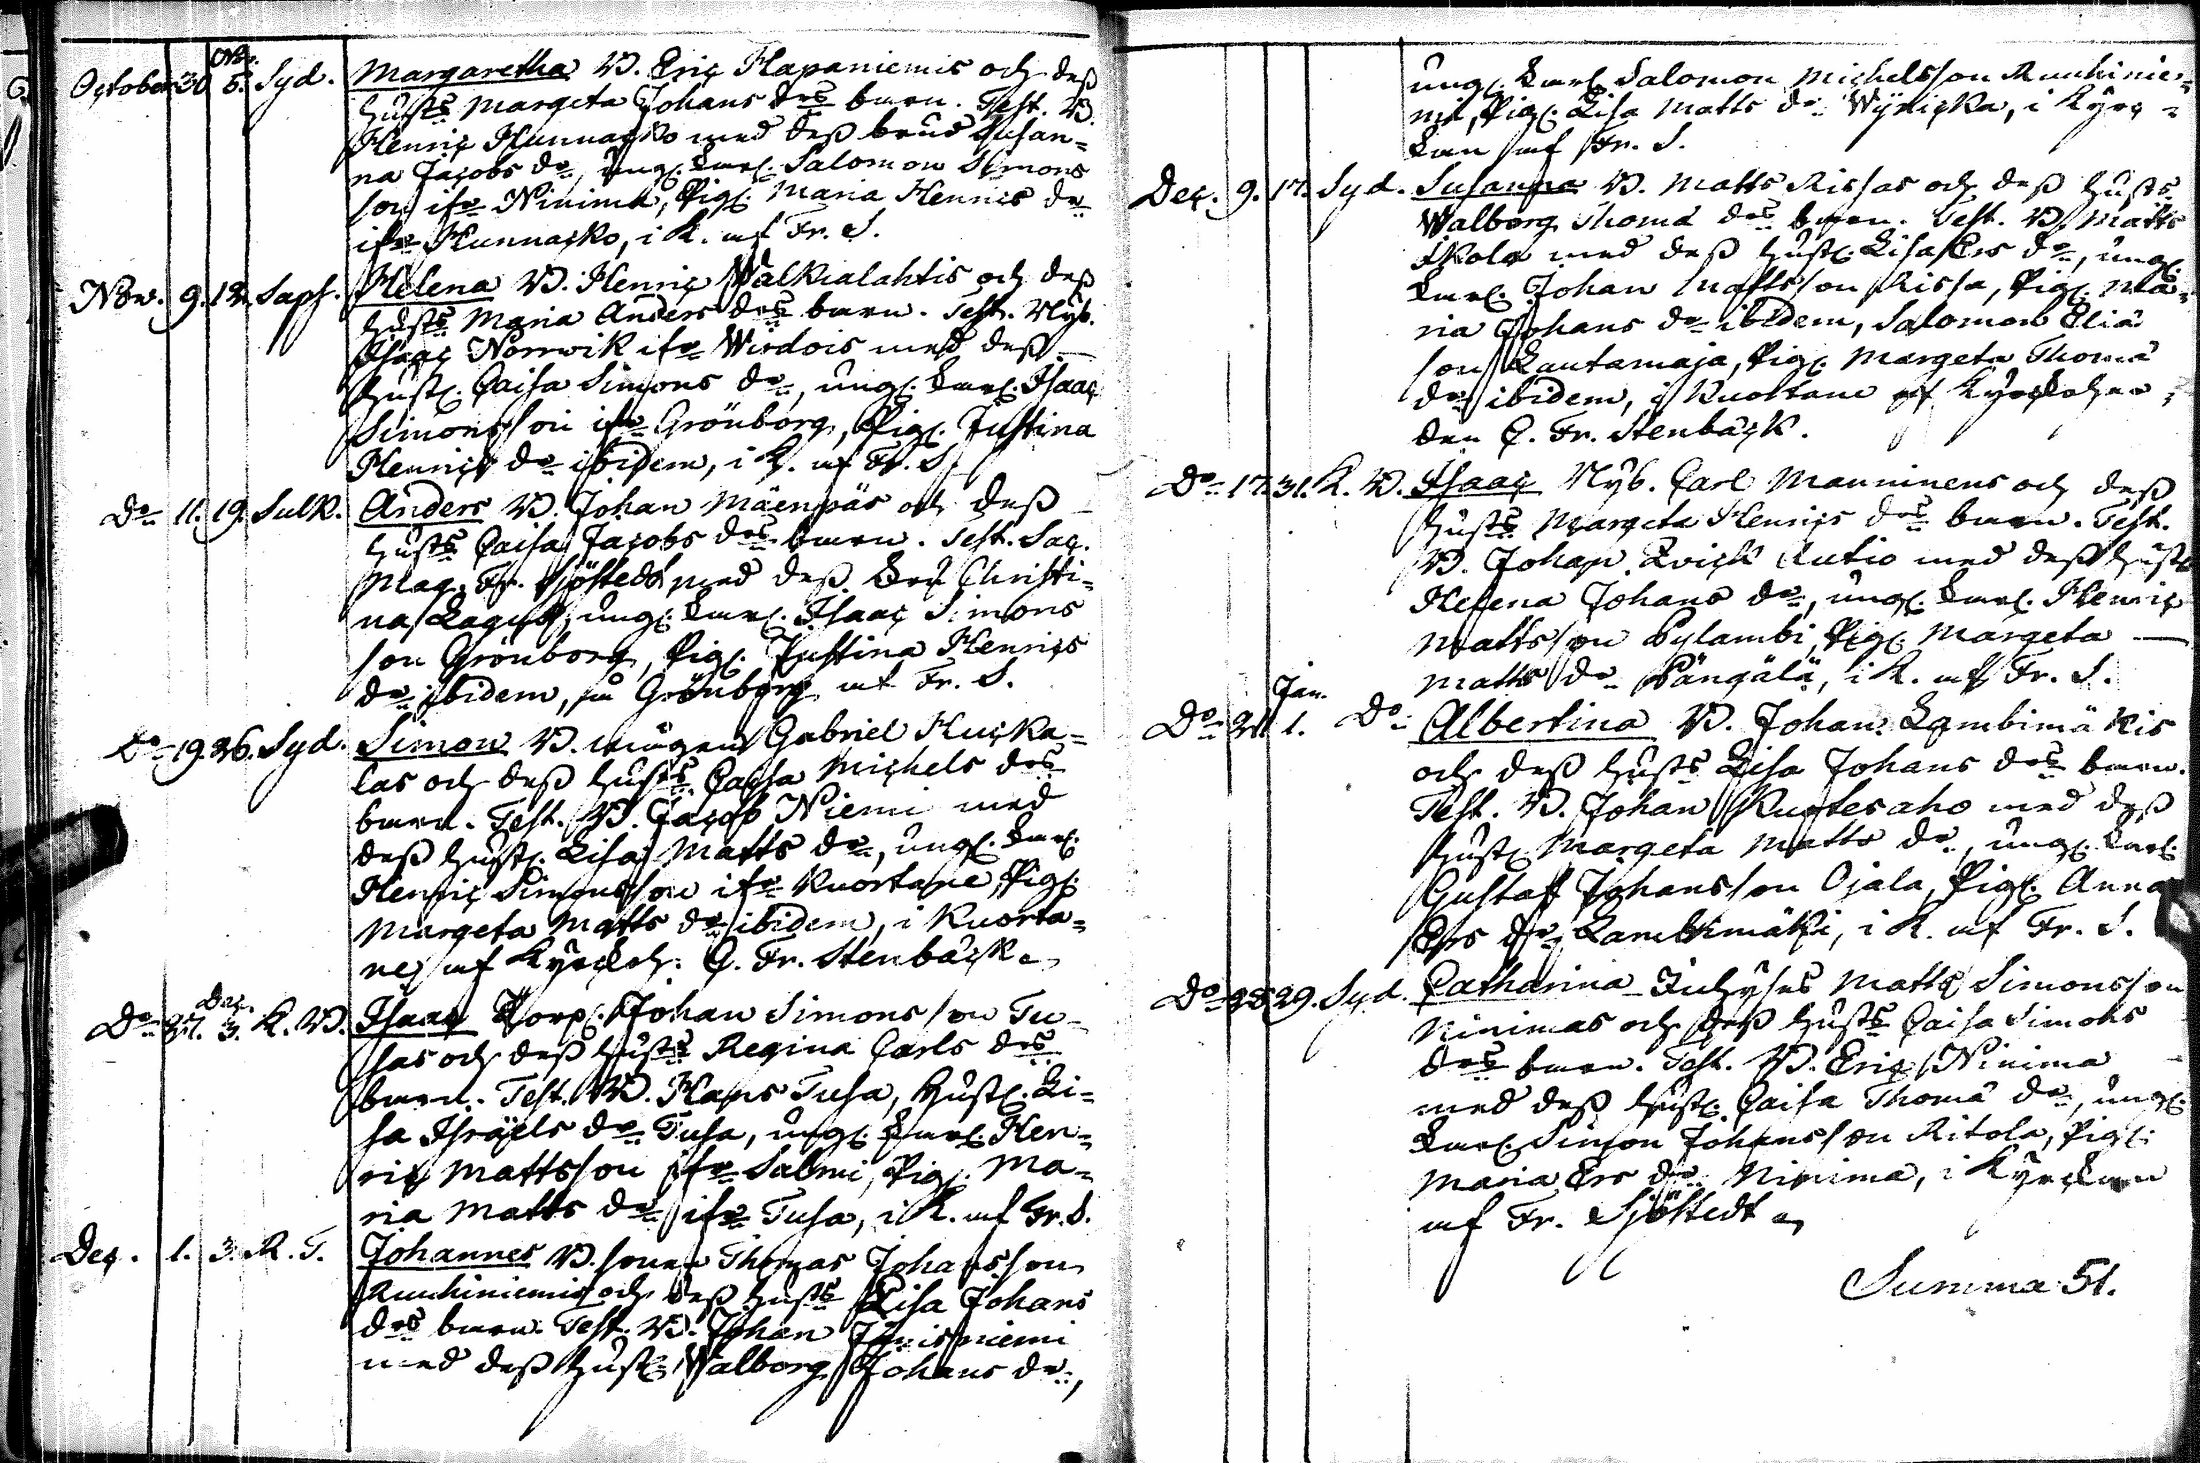 Nov.
October 30 5. Syd. Margaretha B. Eric Hapaniemis och deß
hustrs Margeta Johans drs barn. Test. B.
Henric Hunnacko med deß brud Susan-
na Jacobs dr, ungk. karl. Salomon Simons
son ifr Ninimä, Pig. Maria Henrics dr
ifr Hunnacko, i K. af Fr. S.
Nov. 9. 12. Saps. Helena B. Henric Walkialahtis och deß
hustrs Maria Anders drs barn. Test. Nyb.
Isaac Norrwik ifr Wirdois med deß
hustr. Caisa Simons dr, ungk. karl. Isaac
Simonsson ifr Grönborg, Pig. Justina
Henrics dr ibidem, i K. af Fr. S.
Do 11. 19. Sulk. Anders B. Johan Mäenpäs och deß
hustrs Caisa Jacobs drs barn. Test. Sac.
Mag. Fr. Sjöstedt med deß Christi-
na Lagus, ungk. karl. Isaac Simons
son Grönborg, Pig. Justina Henrics
dr ibidem, på Grönborg af Fr. S.
Do 19. 26. Syd. Simon B. mågens Gabriel Kucka-
las och deß hustrs Caisa Michels drs
barn. Test. B. Jacob Niemi med
deß hustr. Lisa Matts dr, ungk. karl.
Henric Simonsson ifr Kuortane, Pig.
Margeta Matts dr ibidem, i Kuorta-
ne af Kyrckoh. C. Fr. Stenbäck.
Dec.
Do 27. 3. K. B. Isaac Torp. Johan Simonsson Tu-
sas och deß hustrs Regina Carls drs
barn. Test. B. Hans Tusa, hustr. Li-
sa Israels dr Tusa, ungk. karl. Hen-
ric Mattsson ifr Salmi, Pig. Ma-
ria Matts dr ifr Tusa, i K. af Fr. S.
Dec. 1. 3. R. T. Johannes B. sonen Thomas Johansson
Ruuhiniemis och deß hustrs Lisa Johans
drs barn. Test. B. Johan Jänisniemi
med deß hustr. Walborg Johans dr,
ungk. karl. Salomon Michelsson Ruuhinie-
mi, Pig. Lisa Matts dr Wyricka, i Kyrc-
kan af Fr. S.
Dec. 9. 17. Syd. Susanna B. Matts Rissas och deß hustrs
Walborg Thomä drs barn. Test. B. Matts
Ikola med deß hustr. Lisa Ers dr, ungk.
karl. Johan Mattsson Rissa, Pig. Ma-
ria Johans dr ibidem, Salomon Eliä
son Lautamaja, Pig. Margeta Thomä
dr ibidem, i Kuortane af Kyrckoher-
den C. Fr. Stenbäck.
Do 17. 31. K. B. Isaac Nyb. Carl Manninens och deß
hustrs Margeta Henrics drs barn. Test.
B. Johan Rutio med deß hustr
Helena Johans dr, ungk. karl. Henric
Mattsson Pylambi, Pig. Margeta
Matts dr Pängälä, i K. af Fr. S.
Jan.
Do 21 1. Do Albertina B. Johan Lambimäkis
och deß hustrs Lisa Johans drs barn.
Test. B. Johan Kuotesaho med deß
hustr Margeta Matts dr, ungk. karl.
Gustaf Johansson Ojala, Pig. Anna
Ers dr Lambimäki, i K. af Fr. S.
Do 28 29. Syd. Catharina Inhyses Matts Simonsson
Ninimas och deß hustrs Caisa Simons
drs barn. Test. B. Eric Ninima
med deß hustr. Caisa Thomä dr, ungk.
karl. Simon Johansson Ritola, Pig.
Maria Ers dr Ninima, i Kyrckan
af Fr. Sjöstedt
Summa 51.